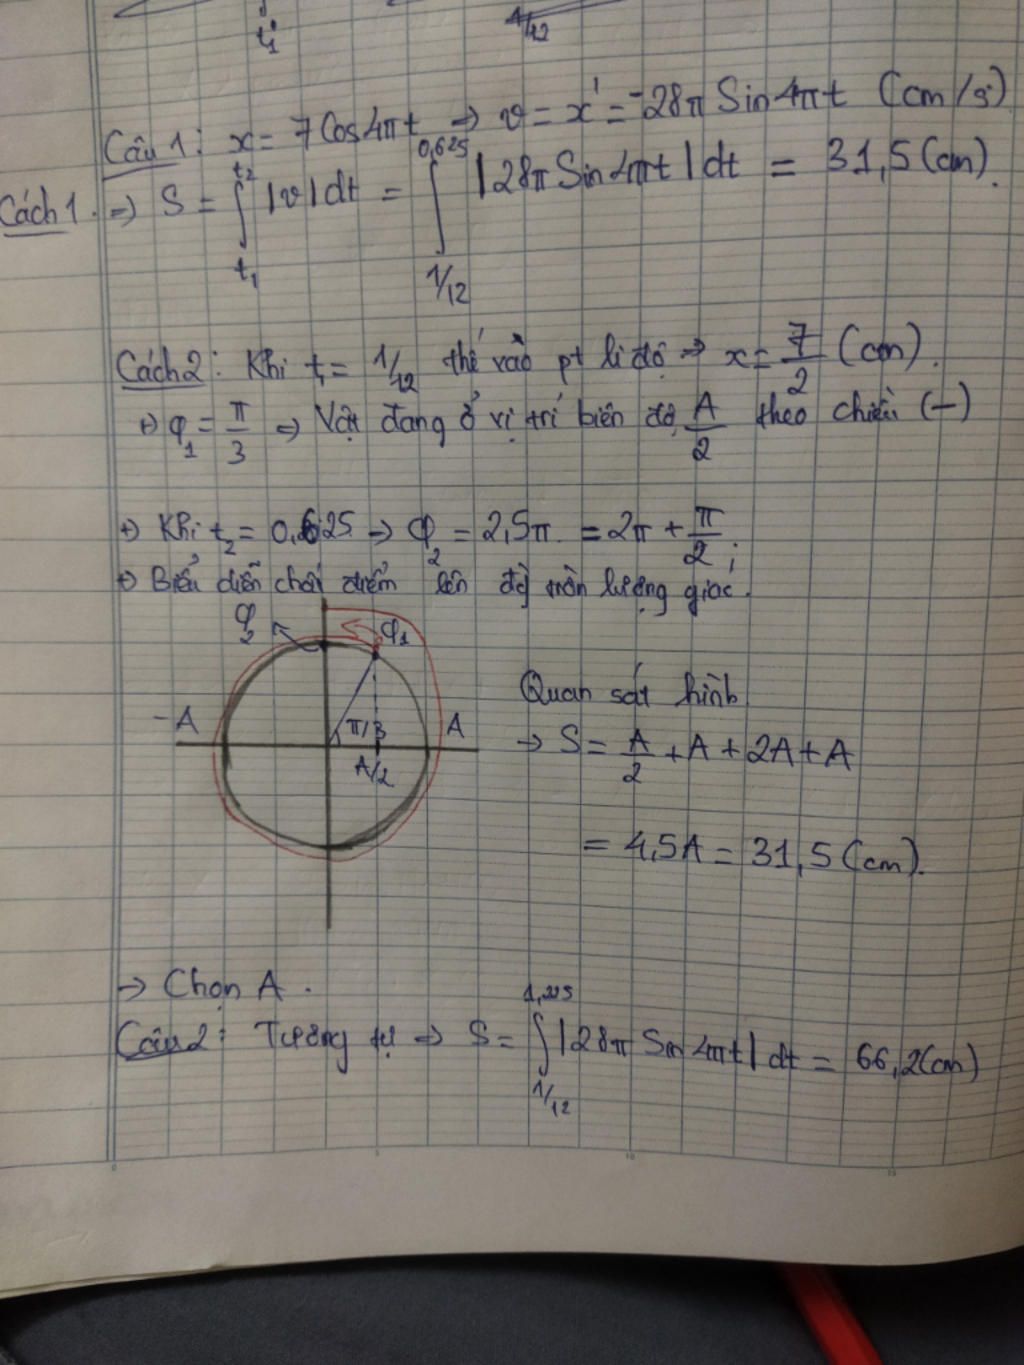 t₁
1/12
Câu 1: x = 7Cos4πt ⇒ v = x' = -28π Sin4πt (cm/s)
Cách 1. ⇒ S = ∫_{t₁}^{t₂} |v|dt = ∫_{1/12}^{0,625} |28π Sin4πt|dt = 31,5(cm).
Cách 2: Khi t₁ = 1/12 thế vào pt li độ ⇒ x = 7/2 (cm).
+) φ₁ = π/3 ⇒ Vật đang ở vị trí biên độ A/2 theo chiều (-)
+) Khi t₂ = 0,625 → φ₂ = 2,5π. = 2π + π/2;
+) Biểu diễn chất điểm lên đg tròn lượng giác.
φ₂ φ₁
-A π/3 A
A/2
Quan sát hình
→ S = A/2 + A + 2A + A
= 4,5A = 31,5(cm).
→ Chọn A.
Câu 2: Tương tự ⇒ S = ∫_{1/12} |28π Sin4πt| dt = 66,2(cm)